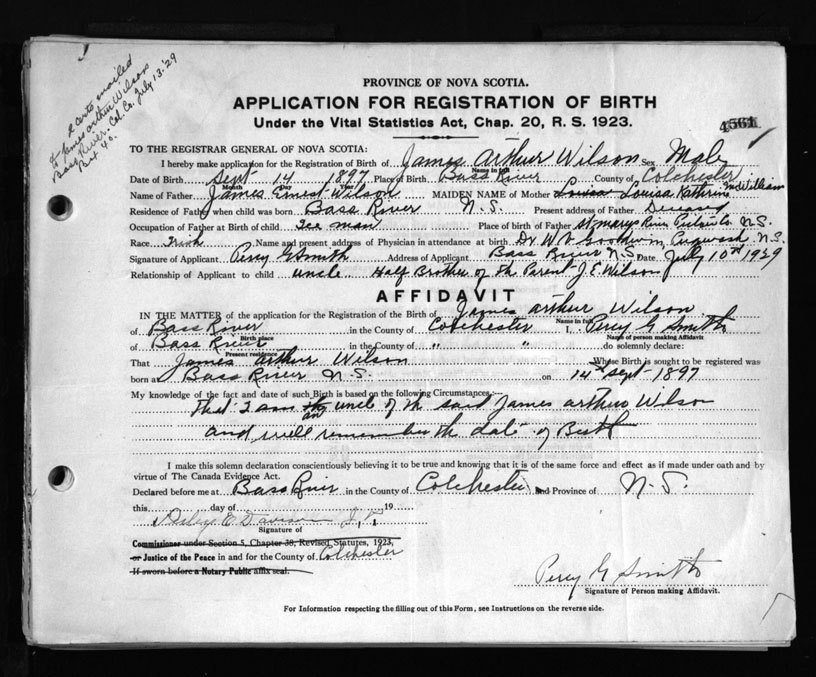 2 certs mailed
to James Arthur Wilson
Bass River, Col. Co. July 13 '29
PROVINCE OF NOVA SCOTIA.
APPLICATION FOR REGISTRATION OF BIRTH
Under the Vital Statistics Act, Chap. 20, R. S. 1923.
4561
TO THE REGISTRAR GENERAL OF NOVA SCOTIA:
I hereby make application for the Registration of Birth of James Arthur Wilson Sex Male
Name in full
Date of Birth Sept 14 1897 Place of Birth Bass River County of Colchester
Month Day Year
Name of Father James Ernest Wilson MAIDEN NAME of Mother Louisa Louisa Kathrine McWilliam
Residence of Father when child was born Bass River N.S. Present address of Father Deceased
Occupation of Father at Birth of child Place of birth of Father St Marys River Pictou Co. N.S.
Race Irish Name and present address of Physician in attendance at birth Dr W R Goodwin, Pugwash, N.S.
Signature of Applicant Percy G Smith Address of Applicant Bass River N.S. Date July 10th 1929
Relationship of Applicant to child uncle Half Brother of the Parent J.E. Wilson
AFFIDAVIT
IN THE MATTER of the application for the Registration of the Birth of James Arthur Wilson
Name in full
of Bass River in the County of Colchester I, Percy G Smith
Birth place Name of person making Affidavit
of Bass River in the County of " " do solemnly declare:
Present residence
That James Arthur Wilson Whose Birth is sought to be registered was
born at Bass River N.S. on 14th Sept - 1897
My knowledge of the fact and date of such Birth is based on the following Circumstances:—
That I am the an uncle of the said James Arthur Wilson
and will remember the date of Birth
I make this solemn declaration conscientiously believing it to be true and knowing that it is of the same force and effect as if made under oath and by
virtue of The Canada Evidence Act.
Declared before me at Bass River in the County of Colchester and Province of N.S.
this day of 19
E Davison J.P.
Signature of
Commissioner under Section 5, Chapter 38, Revised Statutes, 1923,
or Justice of the Peace in and for the County of Colchester
If sworn before a Notary Public affix seal.
Percy G Smith
Signature of Person making Affidavit.
For Information respecting the filling out of this Form, see Instructions on the reverse side.